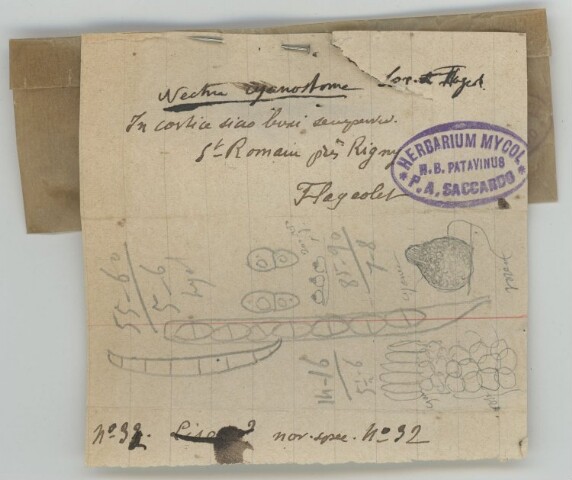 Nectria cyanostoma Sacc. & Flageol.
In cortice sicco buxi sempervir.
St Romain près Rigny
Flageolet
HERBARIUM MYCOL.
H. B. PATAVINUS
P. A. SACCARDO
55-60
5-6
85-90
7-8
14-16
5-6
No 32. nov. spec. No 32